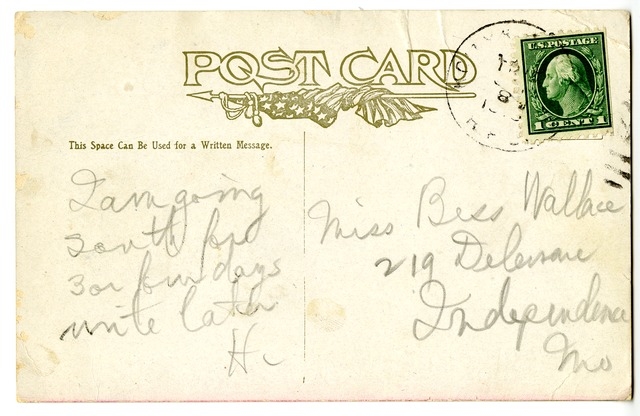 POST CARD
U.S. POSTAGE
1 CENT 1
This Space Can Be Used for a Written Message.
I am going
South for
3 or four days
write later
H.
Miss Bess Wallace
219 Delaware
Independence
Mo